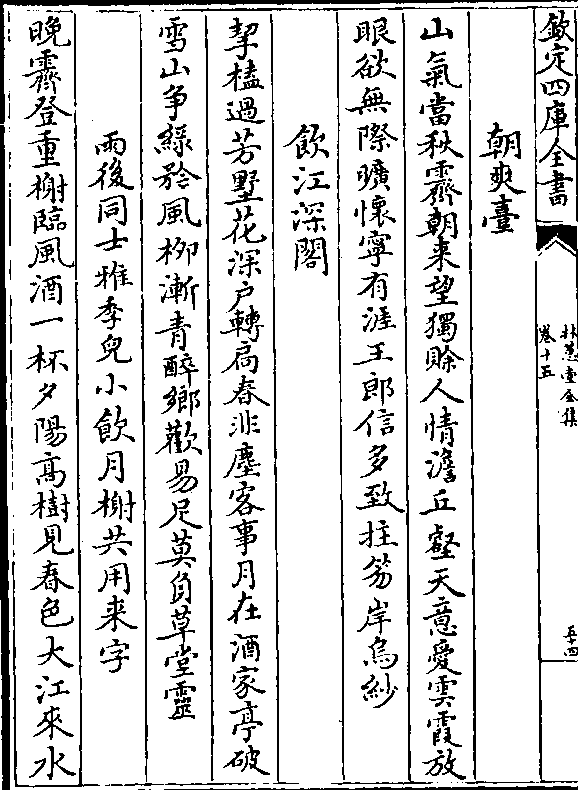 欽定四庫全書
林蕙堂全集
卷十五
五十四
朝爽臺
山氣當秋霽朝來望獨賒人情澹丘壑天意愛雲霞放
眼欲無際曠懷寧有涯王郎信多致拄笏岸烏紗
飲江深閣
挈榼過芳墅花深户轉扃春非塵客事月在酒家亭破
雪山爭綠矜風柳漸青醉鄉歡易足莫負草堂靈
雨後同士雅季兒小飲月榭共用来字
晚霽登重榭臨風酒一杯夕陽高樹見春色大江來水